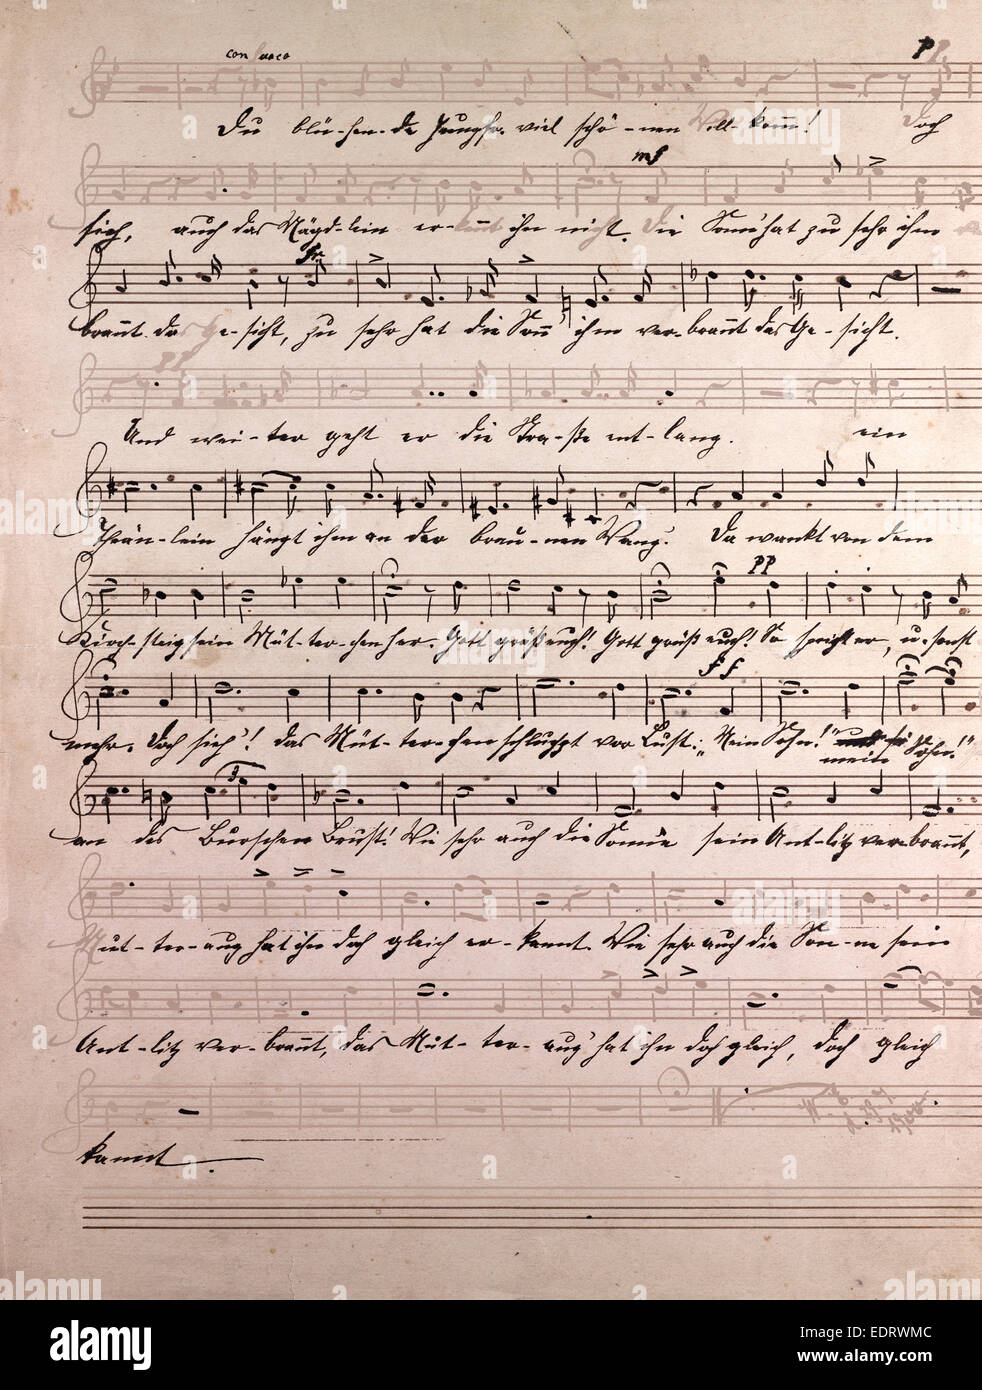 con fuoco
p p.
Du blü-hen-de Jungfr. viel schö-nen Will-komm! Doch
mf
sieh, auch das Mägd-lein er-kennt ihn nicht. Die Sonn' hat zu sehr ihm
brannt das Ge-sicht, zu sehr hat die Sonn' ihm ver-brannt das Ge-sicht.
pp
Und wei-ter geht er die Stra-ße ent-lang. ein
Thrän-lein hängt ihm an der brau-nen Wang. Da wankt von dem
pp
Kirch-steig sein Müt-ter-chen her. Gott grüß euch! Gott grüß euch! So spricht er, u. sonst
ff
mehr. Doch sieh'! das Müt-ter-chen schluchzt vor Lust: „Mein Sohn!" mein Sohn!"
3
an des Burschen Brust! Wie sehr auch die Sonne sein Ant-litz verbrannt,
Mut-ter-aug hat ihn doch gleich er-kannt. Wie sehr auch die Son-ne sein
Ant-litz ver-brannt, das Mut-ter-aug' hat ihn doch gleich, doch gleich
kannt.
alamy
Image ID: EDRWMC
www.alamy.com